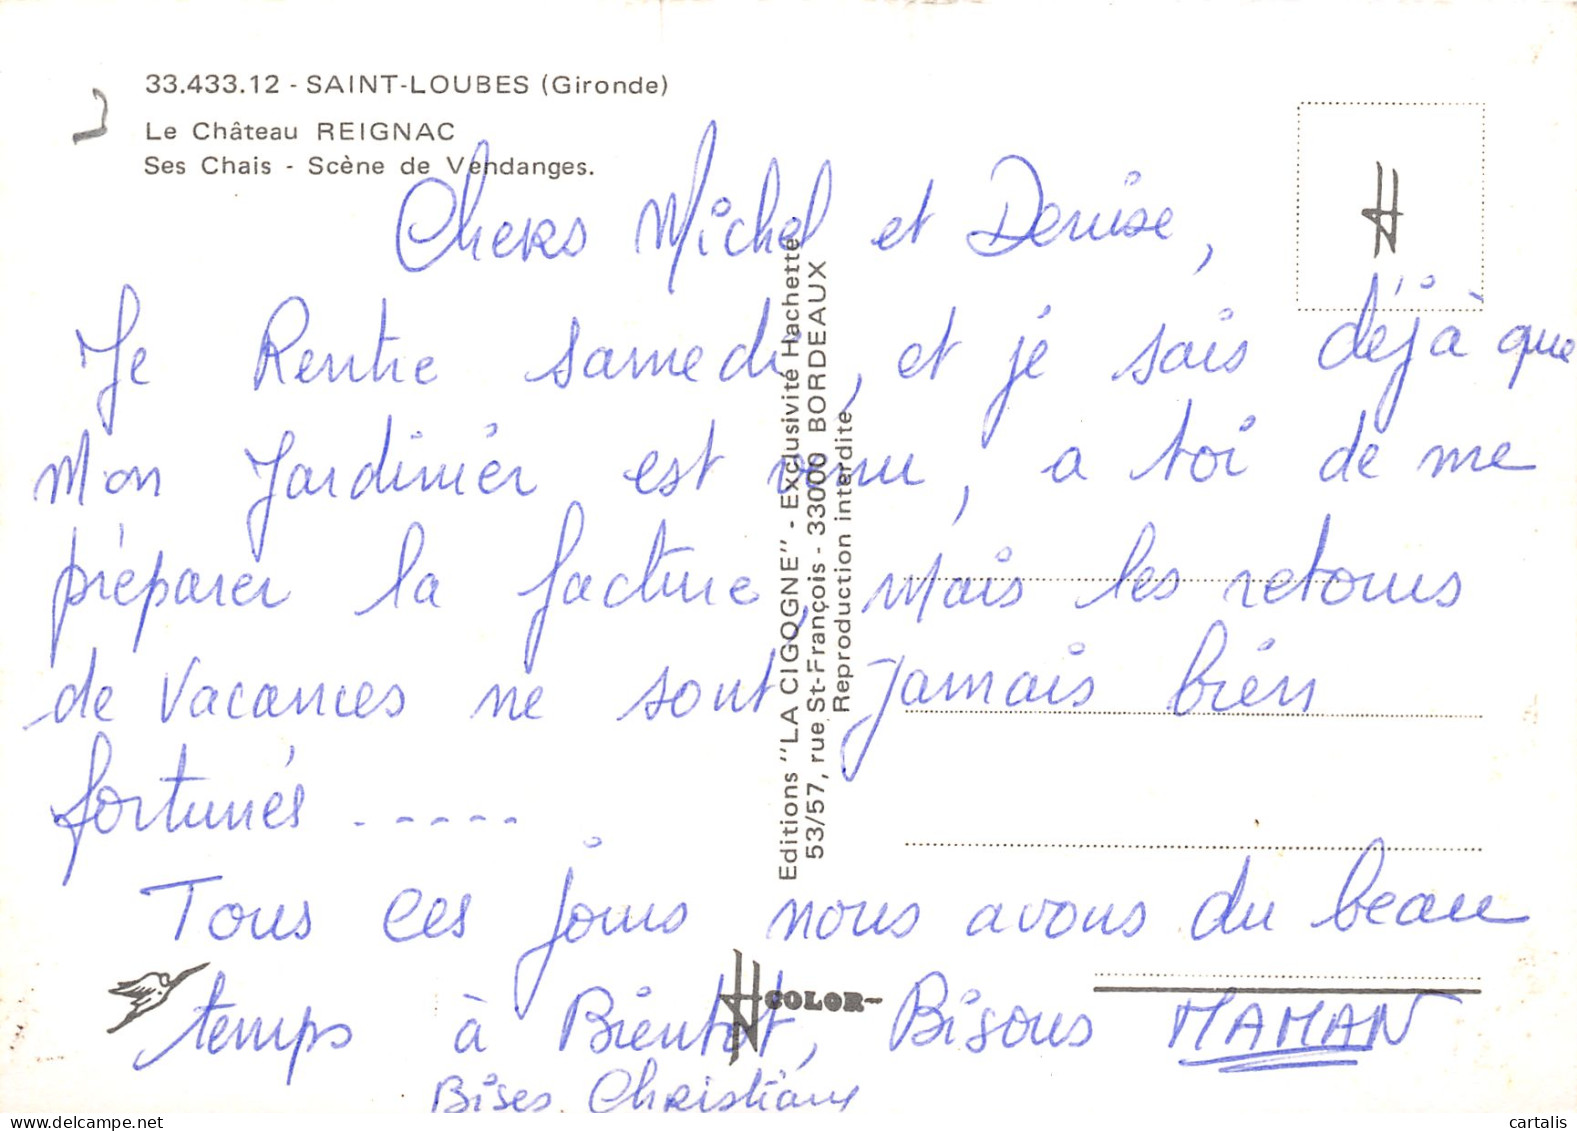 33.433.12 - SAINT-LOUBES (Gironde)
Le Château REIGNAC
Ses Chais - Scène de Vendanges.
Chers Michel et Denise,
Je Rentre samedi, et je sais déjà que
Mon Jardinier est venu, a toi de me
préparer la facture, Mais les retours
de vacances ne sont jamais bien
fortunés . - - - -
Tous ces jours nous avons du beau
temps à Bientôt, Bisous MAMAN
Bises Christiane
Editions "LA CIGOGNE" - Exclusivité Hachette
53/57, rue St-François - 33000 BORDEAUX
Reproduction interdite
COLOR
cartalis